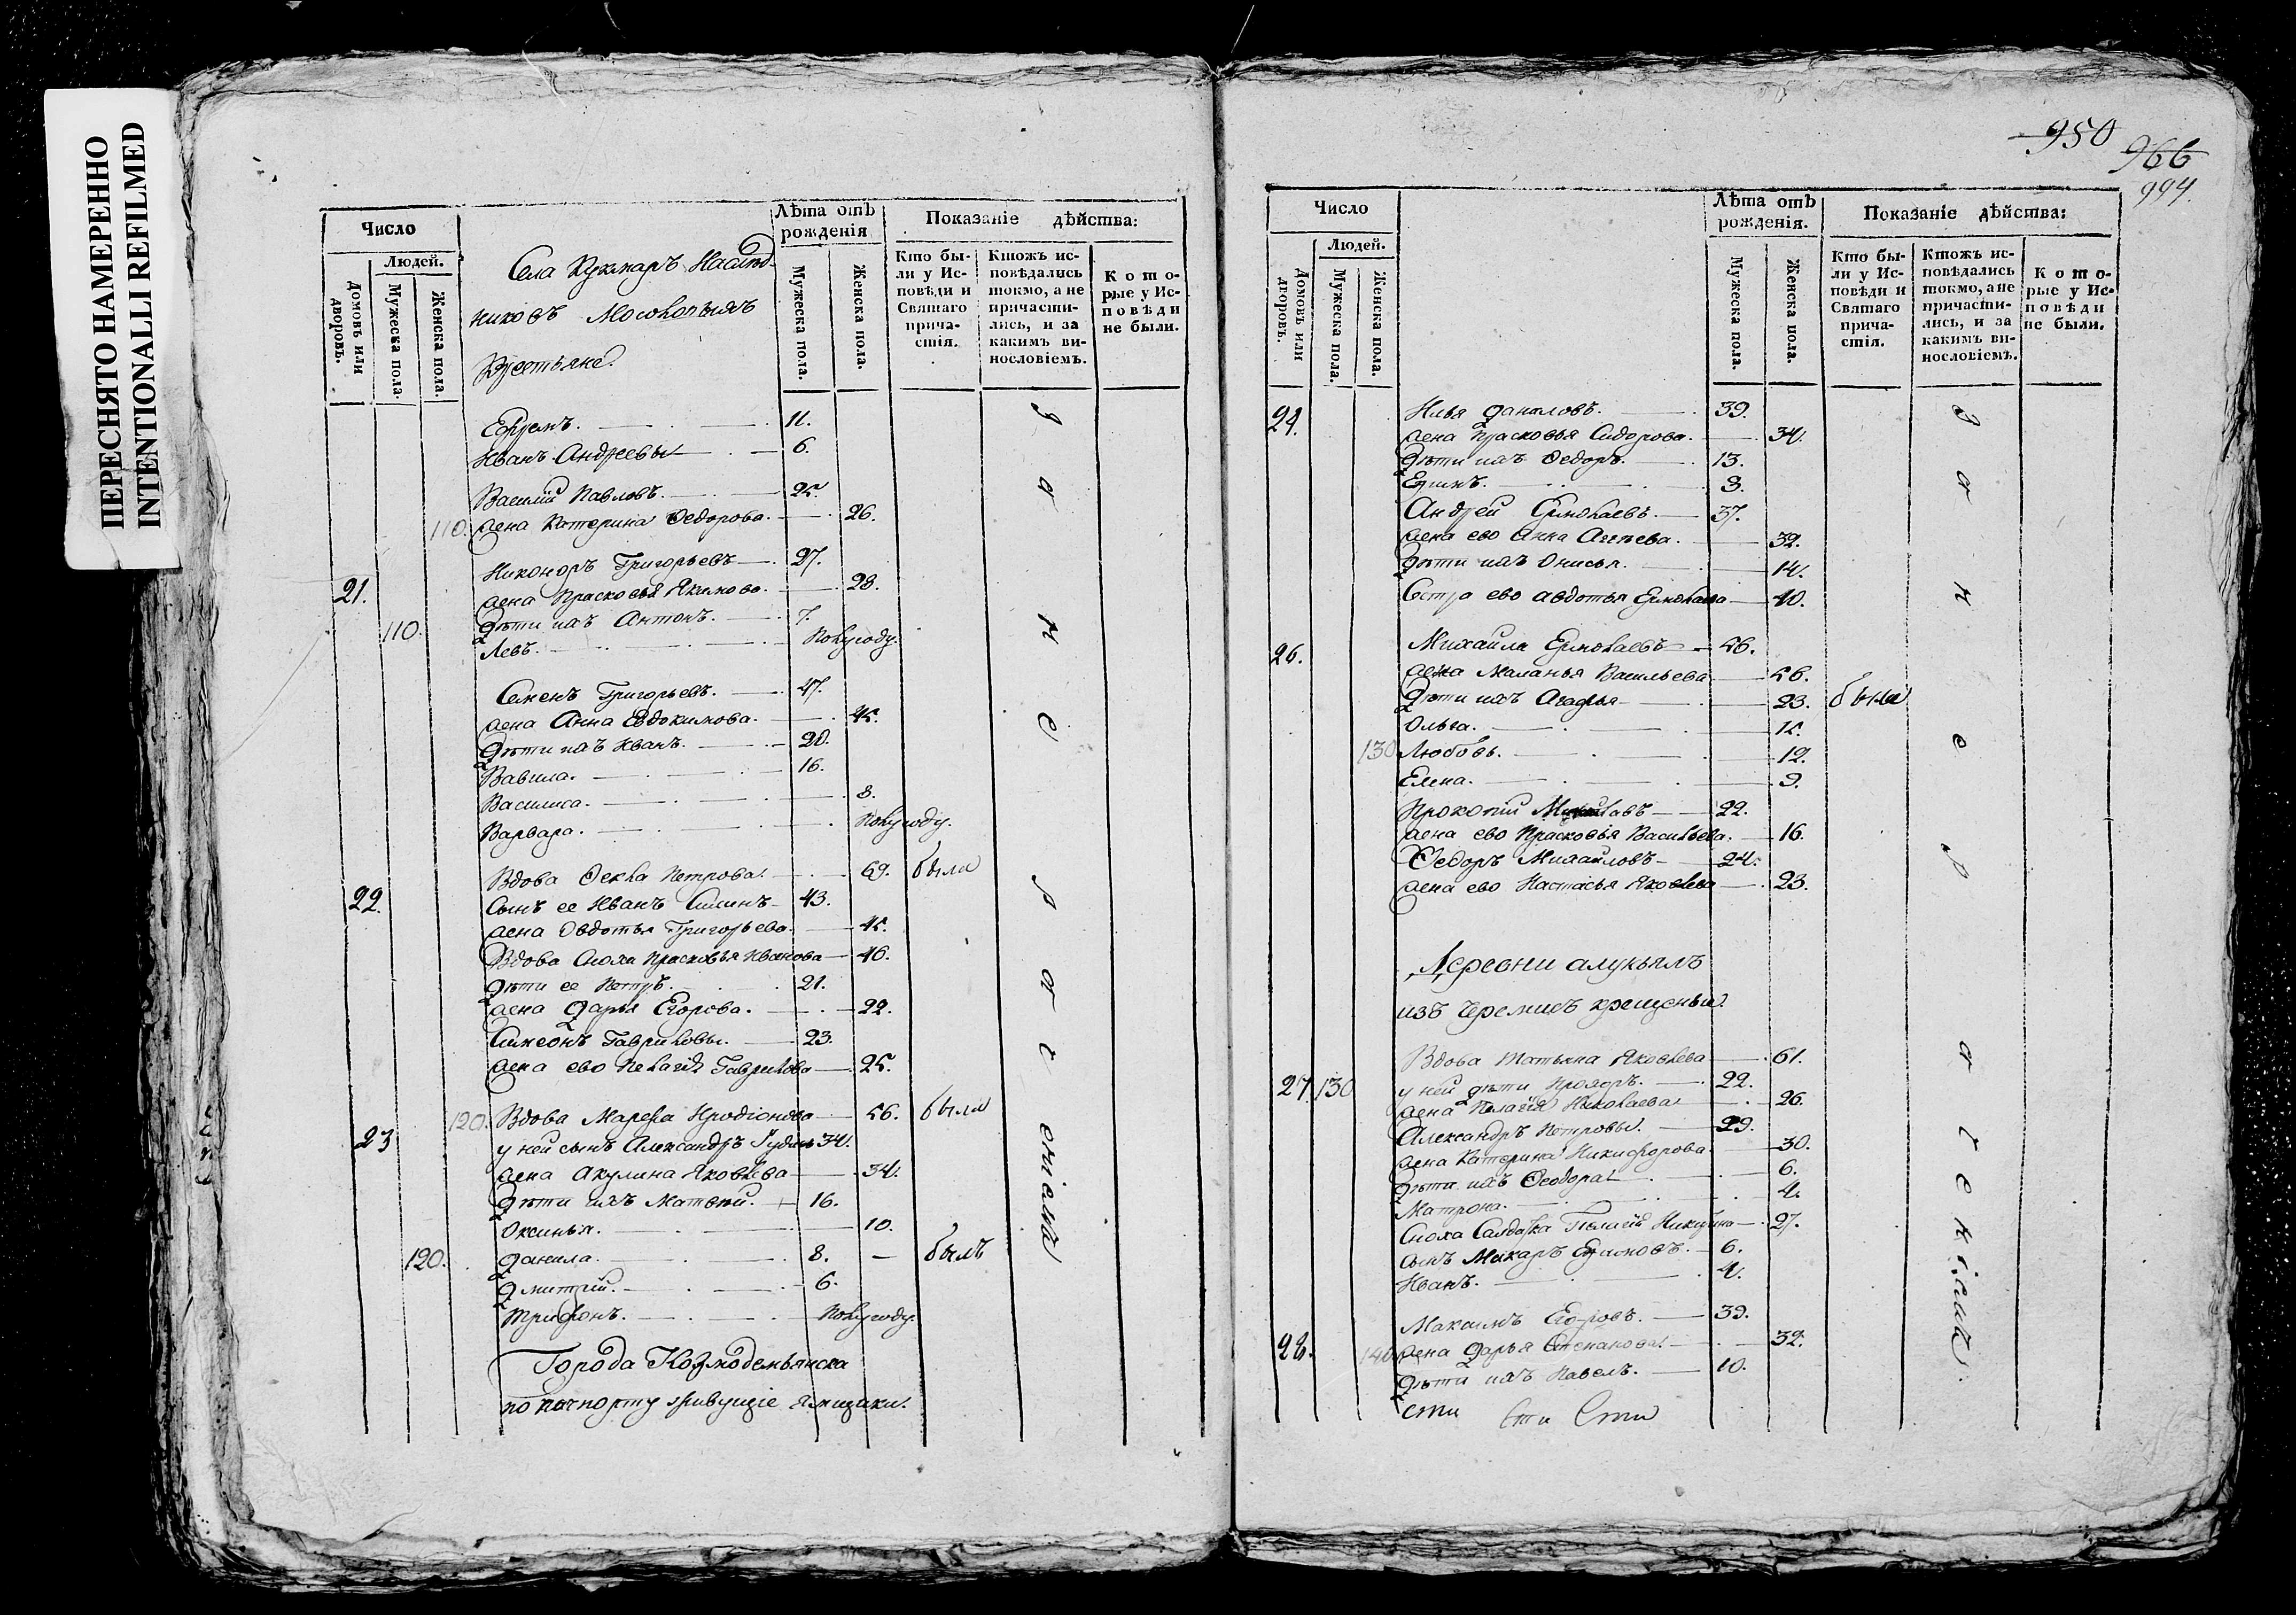 ПЕРЕСНЯТО НАМЕРЕННО
INTENTIONALLI REFILMED
Число
Людей.
Домовъ или дворовъ.
Мужеска пола.
Женска пола.
Села Кукмаръ
Крестьяне.
Лѣта отъ рожденія
Мужеска пола.
Женска пола.
Показаніе дѣйства:
Кто были у Исповѣди и Святаго причастія.
Ктожъ исповѣдались токмо, а не причастились, и за какимъ винословіемъ.
Которые у Исповѣди не были.
Ефремъ. 11.
Иванъ Андреевы 6.
Василій Павловъ. 25.
110. жена Катерина Федорова. 26.
21. Никоноръ Григорьевъ 27.
жена Прасковья Якимова. 28.
110. дѣти ихъ Антонъ. 7.
Левъ. Полугоду.
Семенъ Григорьевъ. 47.
жена Анна Евдокимова. 45.
дѣти ихъ Иванъ. 20.
Вавила. 16.
Василиса. 8.
Варвара. Полугоду.
Вдова Фекла Петрова. 69. была
22. Сынъ ее Иванъ 43.
жена Овдотья Григорьева. 45.
Вдова сноха Прасковья Иванова 40.
дѣти ее Петръ. 21.
жена Дарья Егорова. 22.
Симеонъ Гавриловы. 23.
жена ево Пелагія Гаврилова 25.
120. Вдова Марфа Иродіонова 56. была
23 у ней сынъ Александръ 34.
жена Акулина Яковлева 34.
дѣти ихъ Матвѣй. 16.
Оксинья. 10.
120. Данила. 8. былъ
Дмитрій. 6.
Трифонъ. Полугоду.
Города Козмодемьянска
по пачпорту живущіе ямщики.
950
966
994.
Число
Людей.
Домовъ или дворовъ.
Мужеска пола.
Женска пола.
Лѣта отъ рожденія.
Мужеска пола.
Женска пола.
Показаніе дѣйства:
Кто были у Исповѣди и Святаго причастія.
Ктожъ исповѣдались токмо, а не причастились, и за какимъ винословіемъ.
Которые у Исповѣди не были.
24. Илья Даниловъ. 39.
жена Прасковья Сидорова. 34.
дѣти ихъ Федоръ. 13.
3.
Андрей Ермолаевъ. 37.
жена ево Анна 32.
дѣти ихъ Онисья. 14.
Сестра ево Авдотья Ермолаева 40.
26. Михаила Ермолаевъ 56.
жена Маланья Васильева 56.
дѣти ихъ Агафья 23. была
Ольга. 15.
130 Любовь. 12.
Елена. 9.
Прокопій 22.
жена ево Прасковья Васильева. 16.
Федоръ Михайловъ 24.
жена ево Настасья Яковлева 23.
Деревни
изъ Черемисъ крещеныя.
Вдова Татьяна Яковлева 61.
27. 130 у ней дѣти Прохоръ. 22.
жена Пелагія Николаева 26.
Александръ Петровы. 29.
жена Катерина Никифорова. 30.
дѣти ихъ Феодора 6.
Матрона. 4.
Сноха Салдатка Пелагія 27.
сынъ Макаръ Ефимовъ. 6.
Иванъ. 4.
28. Максимъ Егоровъ. 39.
140 жена Дарья Степанова. 32.
дѣти ихъ Павелъ. 10.